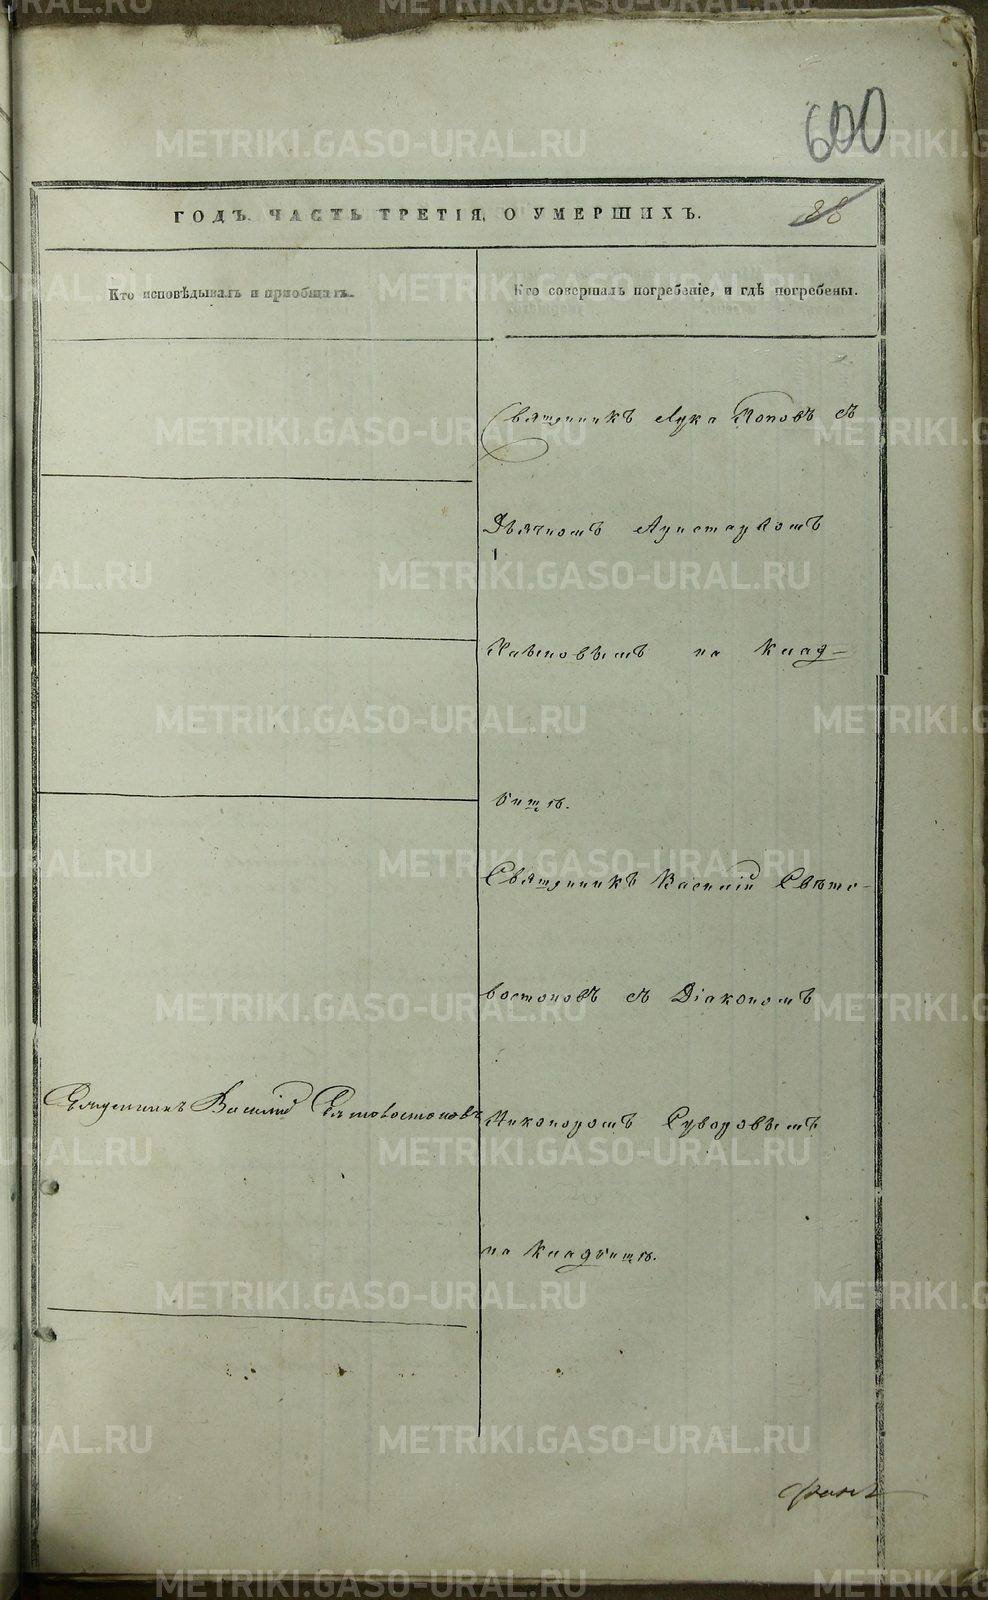 600
ГОДЪ. ЧАСТЬ ТРЕТІЯ, О УМЕРШИХЪ.
88
Кто исповѣдывалъ и пріобщалъ.
Кто совершалъ погребеніе, и гдѣ погребены.
Священникъ Лука Поповъ съ
Дьячкомъ Аристархомъ
на клад-
бищѣ.
Священникъ Василій Свѣто-
востоковъ съ Діакономъ
Священникъ Василій Свѣтовостоковъ
Никаноромъ Суворовымъ
на кладбищѣ.
METRIKI.GASO-URAL.RU